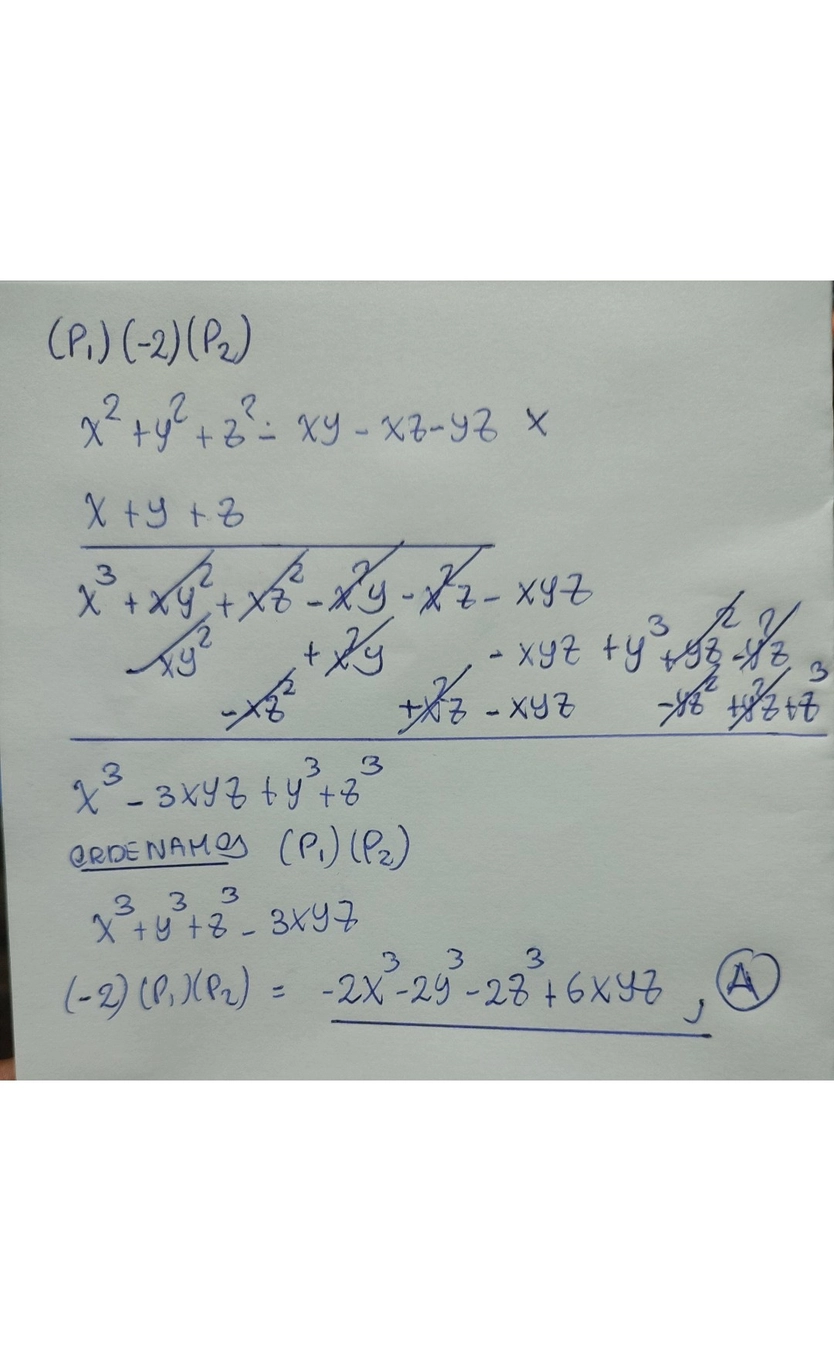 (P₁)(-2)(P₂)
x² + y² + z² - xy - xz - yz x
x + y + z
x³ + xy² + xz² - x²y - x²z - xyz
- xy² + x²y - xyz + y³ + yz² - y²z
- xz² + x²z - xyz - yz² + y²z + z³
x³ - 3xyz + y³ + z³
ORDENAMOS (P₁)(P₂)
x³ + y³ + z³ - 3xyz
(-2)(P₁)(P₂) = -2x³ - 2y³ - 2z³ + 6xyz , A